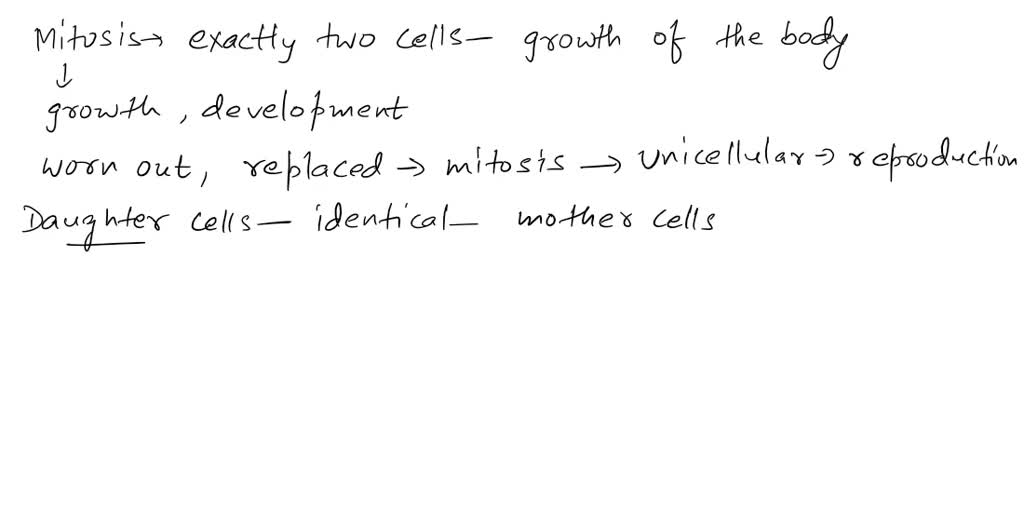 Mitosis→ exactly two cells— growth of the body
↓
growth, development
worn out, replaced → mitosis → unicellular → reproduction
Daughter cells— identical— mother cells